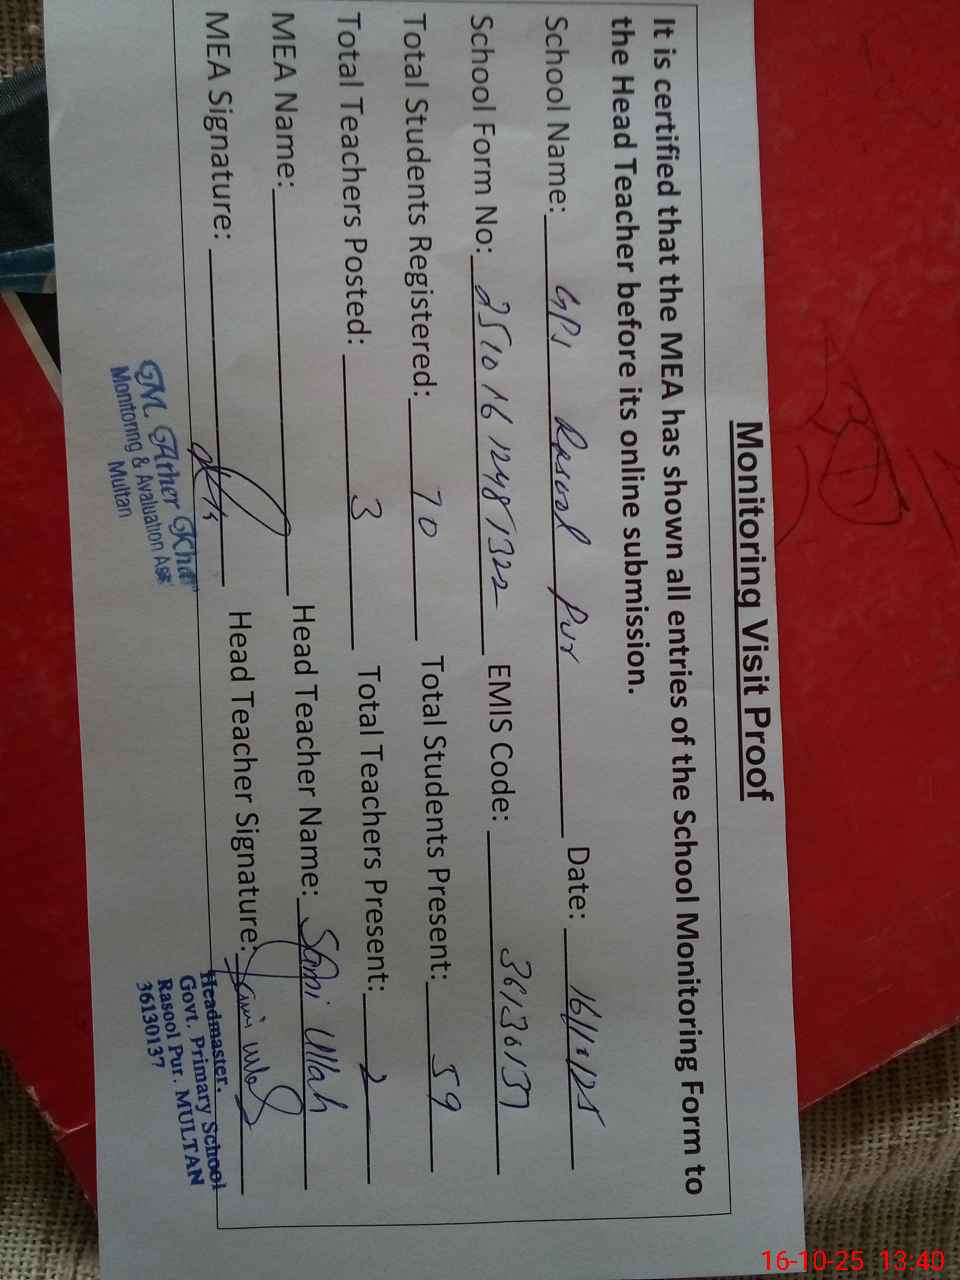 Monitoring Visit Proof
It is certified that the MEA has shown all entries of the School Monitoring Form to
the Head Teacher before its online submission.
School Name: GPS Rasool Pur Date: 16/10/25
School Form No: 251016 12481322 EMIS Code: 36130137
Total Students Registered: 70 Total Students Present: 59
Total Teachers Posted: 3 Total Teachers Present: 2
MEA Name: Head Teacher Name: Sami Ullah
MEA Signature: Head Teacher Signature: Sami Ullah
Monitoring & Evaluation
Multan
Headmaster.
Govt. Primary School
Rasool Pur. MULTAN
36130137
16-10-25 13:40